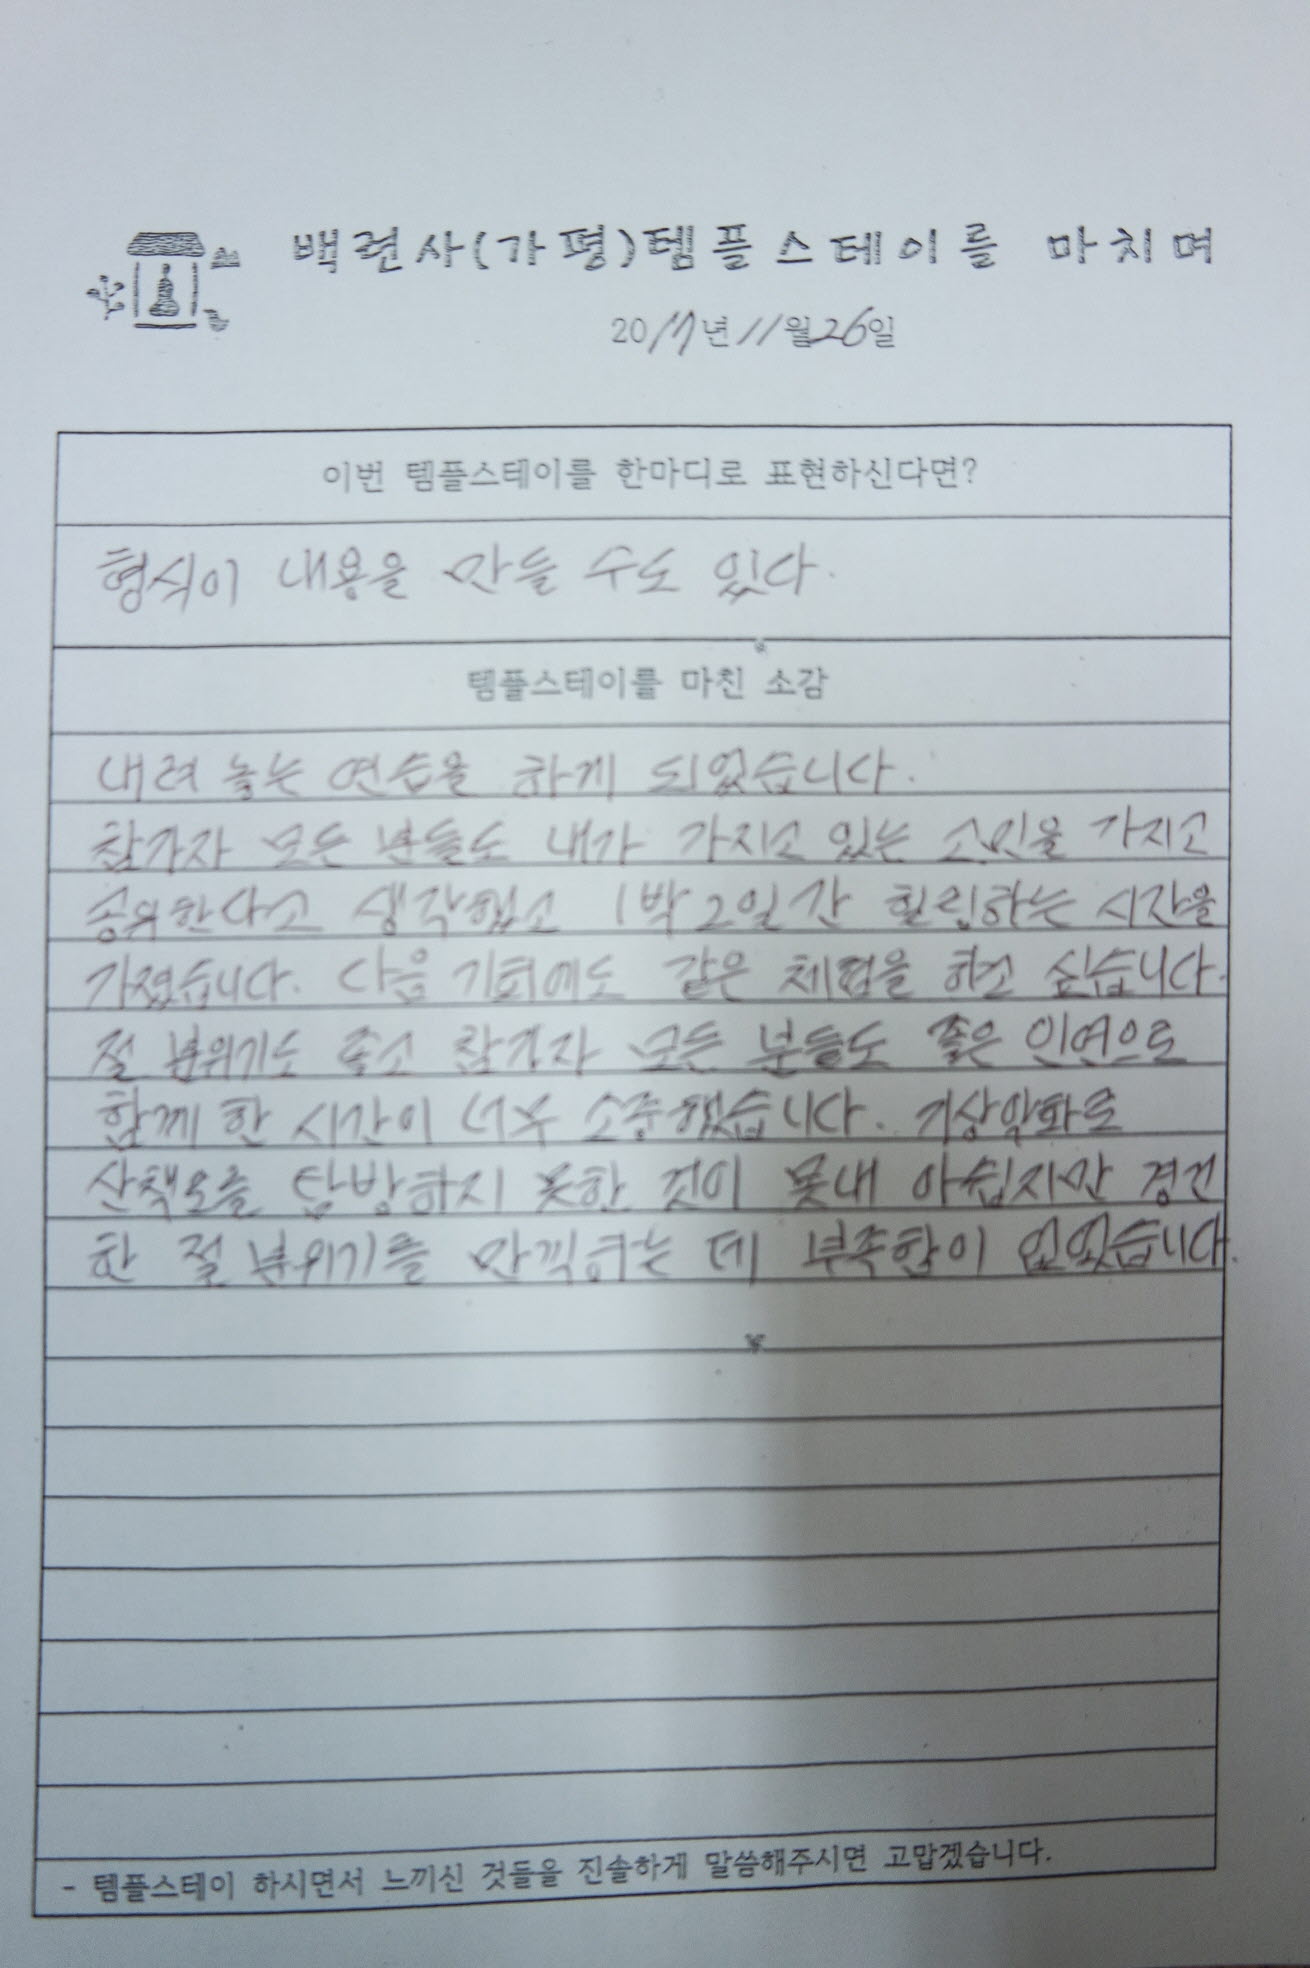 백련사(가평)템플스테이를 마치며
2017년 11월 26일
이번 템플스테이를 한마디로 표현하신다면?
형식이 내용을 만들 수도 있다.
템플스테이를 마친 소감
내려 놓는 연습을 하게 되었습니다.
참가자 모든 분들도 내가 가지고 있는 고민을 가지고
공유한다고 생각했고 1박2일간 힐링하는 시간을
가졌습니다. 다음 기회에도 같은 체험을 하고 싶습니다.
절 분위기도 좋고 참가자 모든 분들도 좋은 인연으로
함께 한 시간이 너무 소중했습니다. 기상악화로
산책로를 탐방하지 못한 것이 못내 아쉽지만 경건
한 절 분위기를 만끽하는 데 부족함이 없었습니다.
- 템플스테이 하시면서 느끼신 것들을 진솔하게 말씀해주시면 고맙겠습니다.